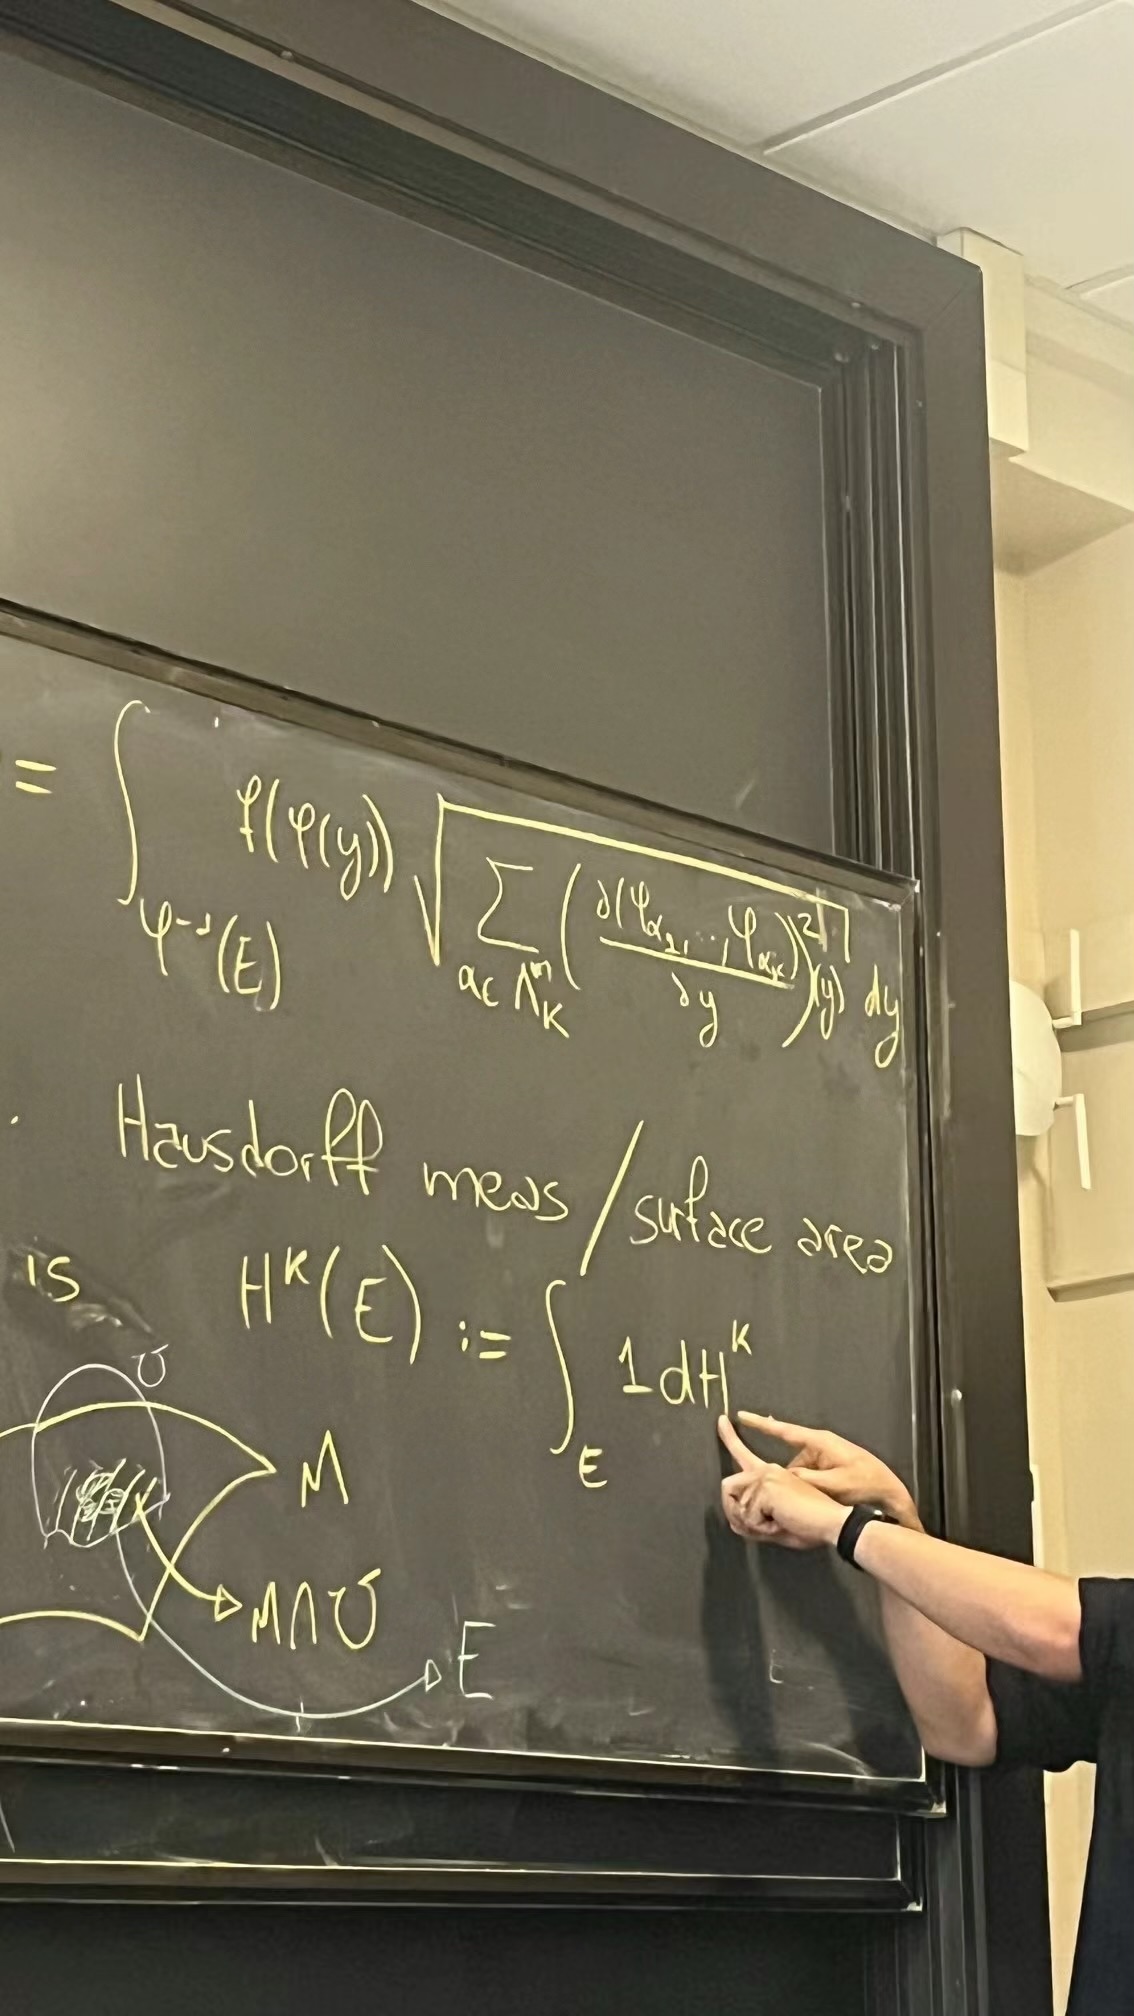 = ∫_{φ⁻¹(E)} f(φ(y)) √( Σ_{α∈Λ_K^n} ( ∂(φ_{α₁},…,φ_{α_K}) / ∂y )² (y) ) dy
Hausdorff meas / surface area
is H^K(E) := ∫_E 1 dH^K
U
M
M∩U
E